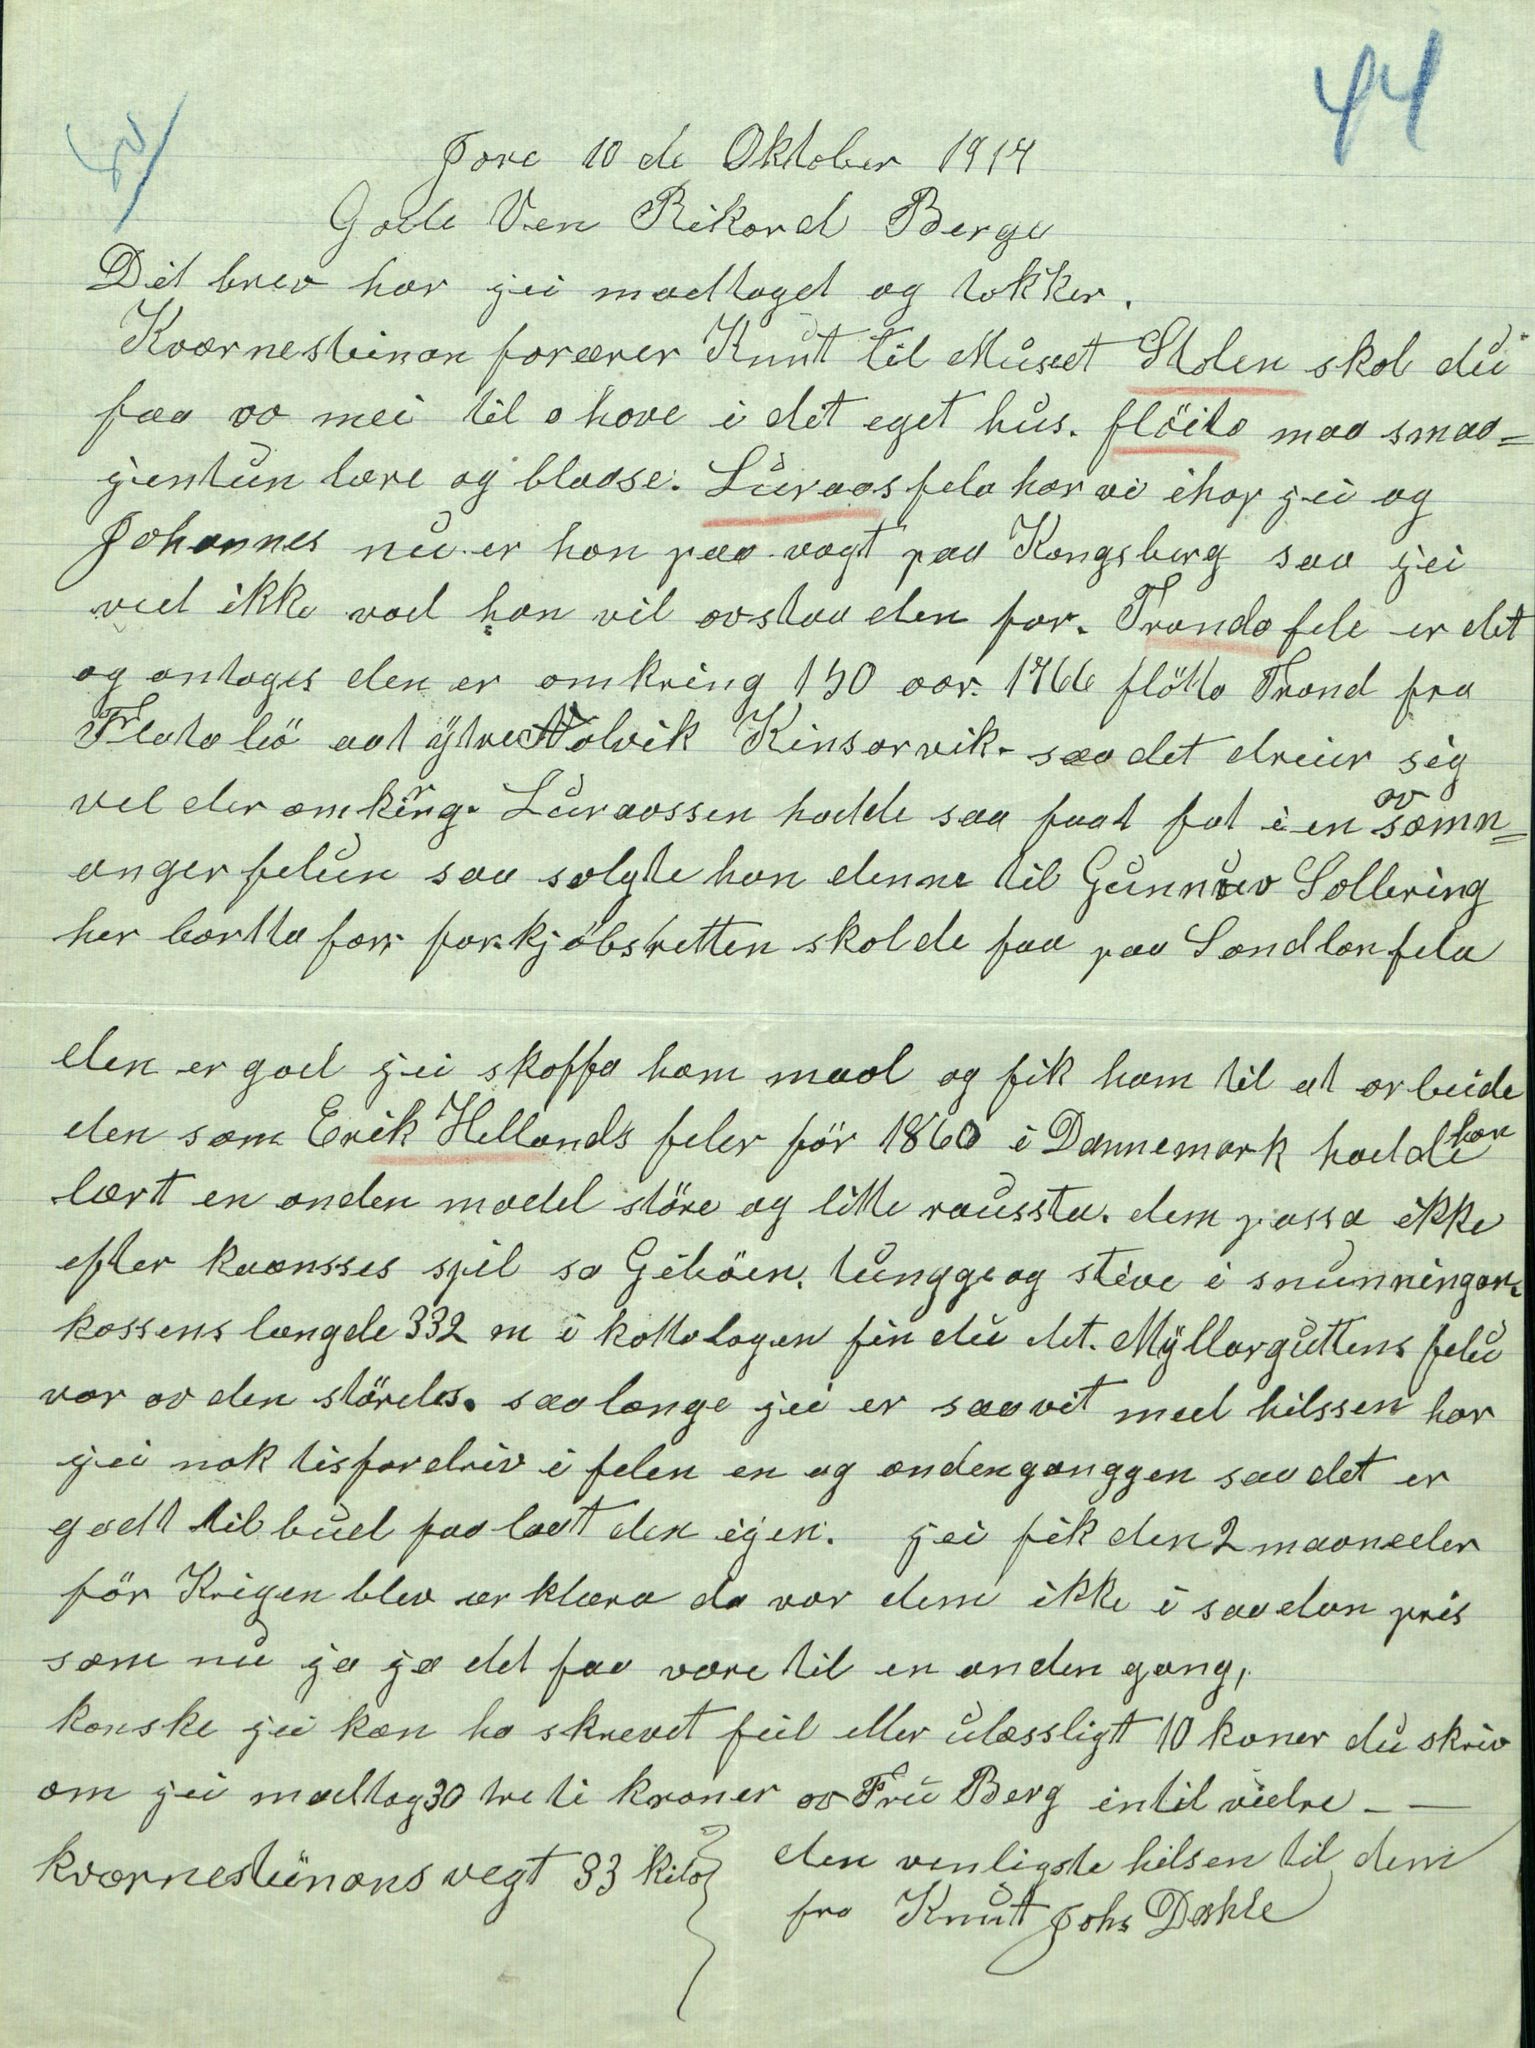 44
Jore 10 de Oktober 1914
Gode Ven Rikard Berge
Dit brev har jei modtaget og takker.
Kværnesteinan forærer Knut til Museet Stolen skal du
faa av mei til a have i dit eget hus. flöita maa smaa=
jentun lære og blaase. Luraasfela har vi ihop jei og
Johannes nu er han paa vagt paa Kongsberg saa jei
ved ikke vad han vil avstaa den for. Trondafele er det
og antages den er omkring 150 aar. 1766 flötta Trond fra
Flatabö aat ÿtre Aalvik Kinsarvik. saa det dreier sig
vel der omkring. Luraassen hadde saa faat fat i en av samn=
angerfelun saa solgte han denne til Gunnuv Sollering
her bortta for forkjöbsretten skolde faa paa Sandlanfela
den er god jei skaffa ham maal og fik ham til at arbeide
den som Erik Hellands feler för 1860 i Dannemark hadde han
lært en anden model störe og litte raussta. dem passa ikke
efter kvænsses spil sa Giböen. tungge og stive i snunningar.
kassens længde 332 m i kattalogen fin du det. Mÿllarguttens fele
var av den störeles. saalænge jei er saavit med hilssen har
jei nok tisfordriv i felen en og andenganggen saa det er
godt tilbud faa lost den igjen. jei fik den 2 maaneder
för Krigen blev ærklæra da var dem ikke i saadan pris
som nu ja ja det faa være til en anden gang,
kanske jei kan ha skrevet feil eller ulæssligt 10 kaner du skriv
om jei modtog 30 tre ti kroner av Fru Berg intil vidre _ _
kværnesteinans vegt 33 kilo
den venligste hilsen til dem
fra Knut Johs Dahle